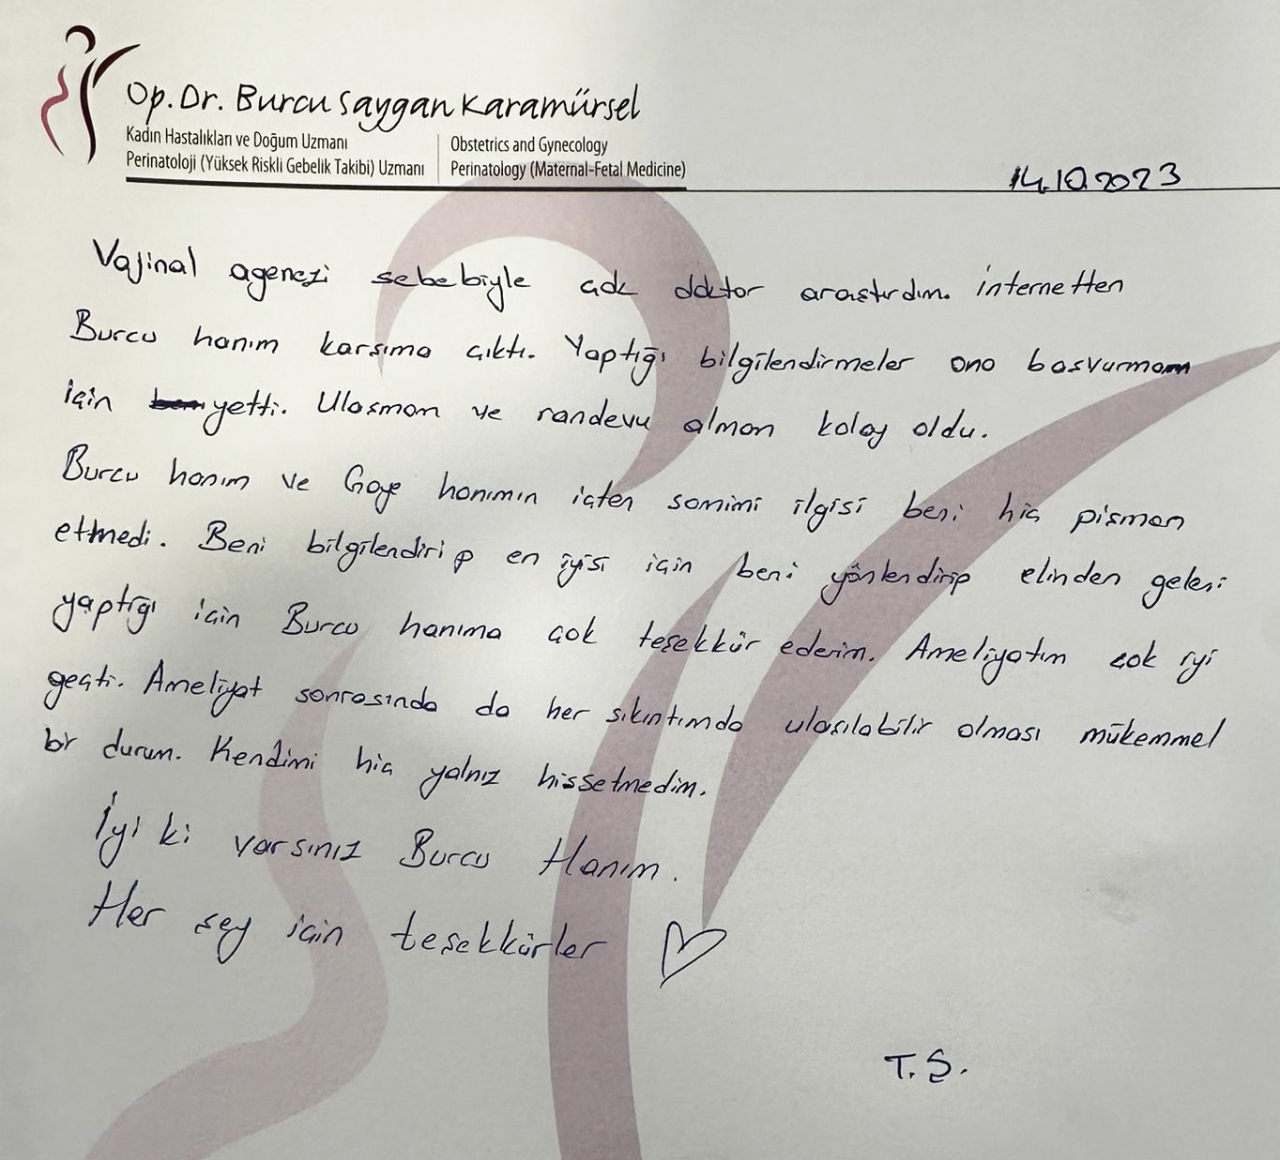 Op. Dr. Burcu Saygan Karamürsel
Kadın Hastalıkları ve Doğum Uzmanı
Perinatoloji (Yüksek Riskli Gebelik Takibi) Uzmanı
Obstetrics and Gynecology
Perinatology (Maternal-Fetal Medicine)
14.10.2023
Vajinal agenezi sebebiyle çok doktor araştırdım. İnternetten
Burcu hanım karşıma çıktı. Yaptığı bilgilendirmeler ona başvurmam
için yetti. Ulaşmam ve randevu almam kolay oldu.
Burcu hanım ve Gaye hanımın içten samimi ilgisi beni hiç pişman
etmedi. Beni bilgilendirip en iyisi için beni yönlendirip elinden geleni
yaptığı için Burcu hanıma çok teşekkür ederim. Ameliyatım çok iyi
geçti. Ameliyat sonrasında da her sıkıntımda ulaşılabilir olması mükemmel
bir durum. Kendimi hiç yalnız hissetmedim.
İyi ki varsınız Burcu Hanım.
Her şey için teşekkürler
T.Ş.